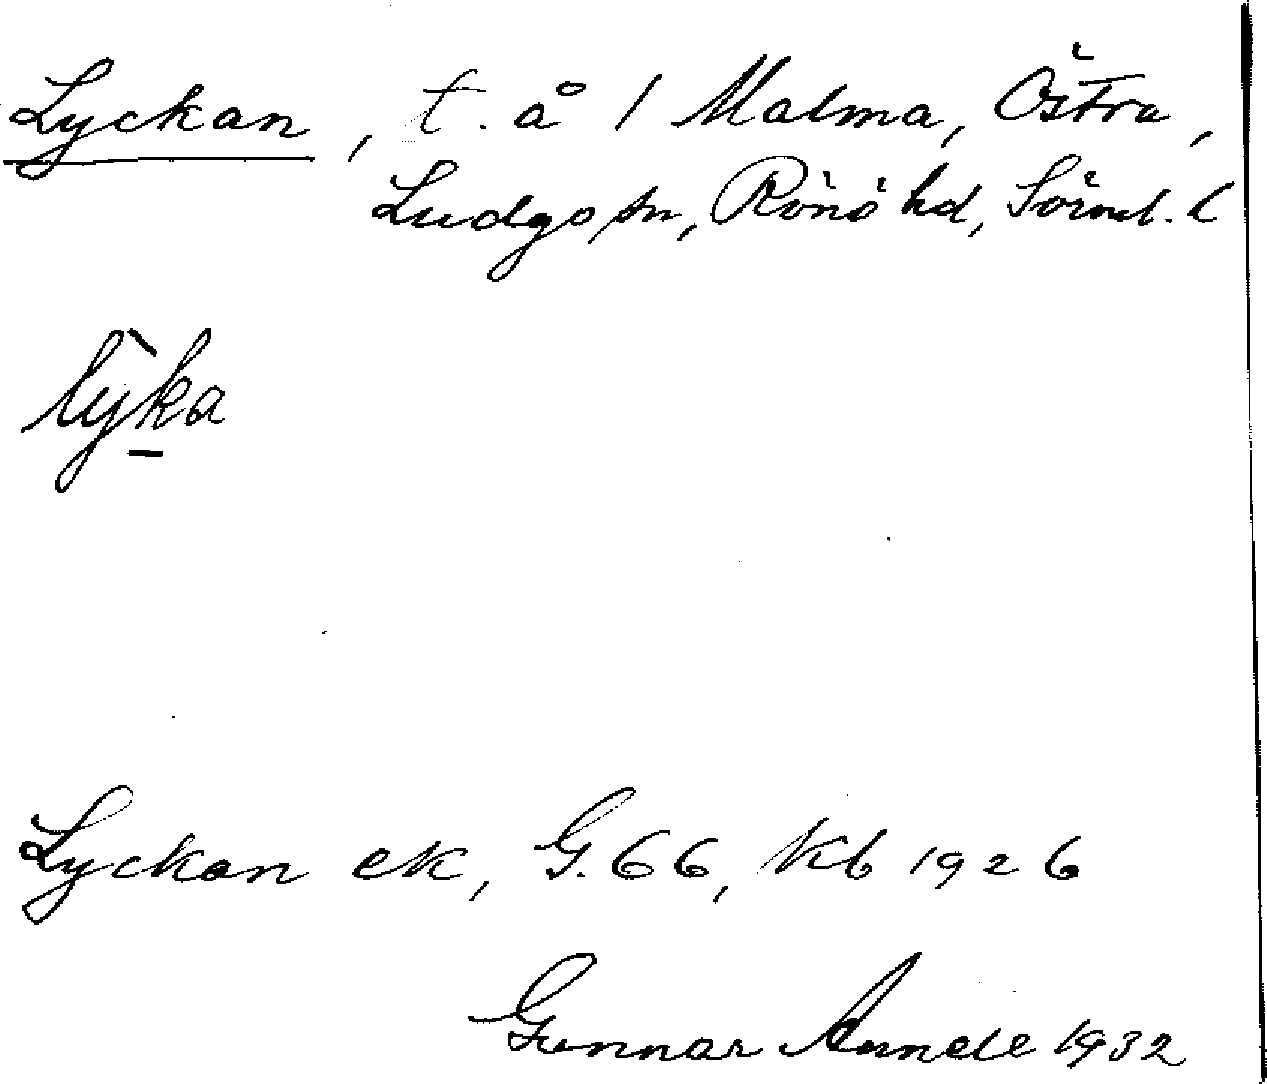 Lyckan, t. å 1 Malma, Östra,
Ludgo sn, Rönö hd, Sörml. l
lỳ̠ka
Lyckan ek, G. 66, Kb 1926
Gunnar 1932